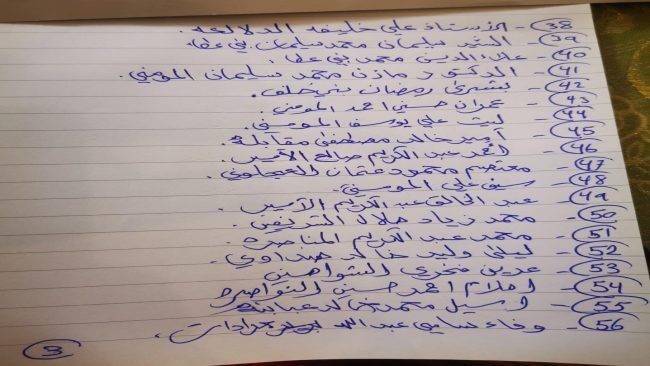 38- الأستاذ علي خليفه الدلالعه.
39- السيد سليمان محمد سلمان بني عطا.
40- علاء الدين محمد بني عطا.
41- الدكتور مازن محمد سليمان المومني.
42- بشرى رمضان بني خلف.
43- عمران حسني احمد المومني.
44- ليث علي يوسف المومني.
45- أمير خالد مصطفى مقابله.
46- احمد عبد الكريم صالح
47- معتصم محمود عثمان العجلوني.
48- سيف علي المومني.
49- عبد الخالق عبد الكريم
50- محمد زياد هلال الشريفين.
51- محمد عبد الكريم المناصره.
52- ليلى وليد خالد صمداوي.
53- عدين فخري الشواهين.
54- احلام احمد حسني النواصره
55- اسيل محمد خالد عبابنه
56- وفاء سامي عبد الله جرادات.
3